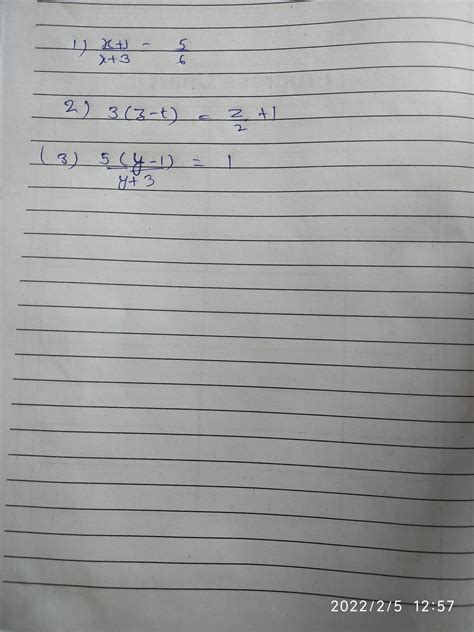 1) x+1/x+3 - 5/6
2) 3(3-t) = z/2 +1
(3) 5(y-1)/y+3 = 1
2022/2/5 12:57